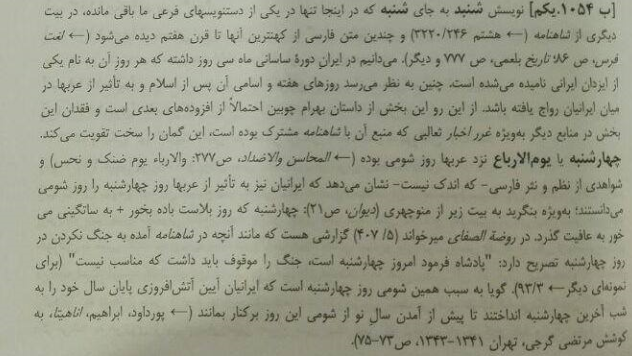 [ب ۱۰۵۴.یکم] نویسش شنبد به جای شنبه که در اینجا تنها در یکی از دستنویسهای فرعی ما باقی مانده، در بیت
دیگری از شاهنامه (← هشتم ۳۲۲۰/۲۴۶) و چندین متن فارسی از کهنترین آنها تا قرن هفتم دیده می‌شود (← لغت
فرس، ص ۸۶؛ تاریخ بلعمی، ص ۷۷۷ و دیگر). می‌دانیم در ایران دورهٔ ساسانی ماه سی روز داشته که هر روز آن به نام یکی
از ایزدان ایرانی نامیده می‌شده است. چنین به نظر می‌رسد روزهای هفته و اسامی آن پس از اسلام و به تأثیر از عربها در
میان ایرانیان رواج یافته باشد. از این رو این بخش از داستان بهرام چوبین احتمالاً از افزوده‌های بعدی است و فقدان این
بخش در منابع دیگر به‌ویژه غرر اخبار ثعالبی که منبع آن با شاهنامه مشترک بوده است، این گمان را سخت تقویت می‌کند.
چهارشنبه یا یوم‌الارباع نزد عربها روز شومی بوده (← المحاسن والاضداد، ص۲۷۷: والارباء یوم ضنک و نحس) و
شواهدی از نظم و نثر فارسی- که اندک نیست- نشان می‌دهد که ایرانیان نیز به تأثیر از عربها روز چهارشنبه را روز شومی
می‌دانستند؛ به‌ویژه بنگرید به بیت زیر از منوچهری (دیوان، ص۲۱): چهارشنبه که روز بلاست باده بخور + به ساتگینی می
خور به عافیت گذرد. در روضة الصفای میرخواند (۵/ ۴۰۷) گزارشی هست که مانند آنچه در شاهنامه آمده به جنگ نکردن در
روز چهارشنبه تصریح دارد: "پادشاه فرمود امروز چهارشنبه است، جنگ را موقوف باید داشت که مناسب نیست" (برای
نمونه‌ای دیگر ← ۹۳/۳). گویا به سبب همین شومی روز چهارشنبه است که ایرانیان آیین آتش‌افروزی پایان سال خود را به
شب آخرین چهارشنبه انداختند تا پیش از آمدن سال نو از شومی این روز برکنار بمانند (← پورداود، ابراهیم، آناهیتا، به
کوشش مرتضی گرجی، تهران ۱۳۴۱-۱۳۴۳، ص۷۳-۷۵).